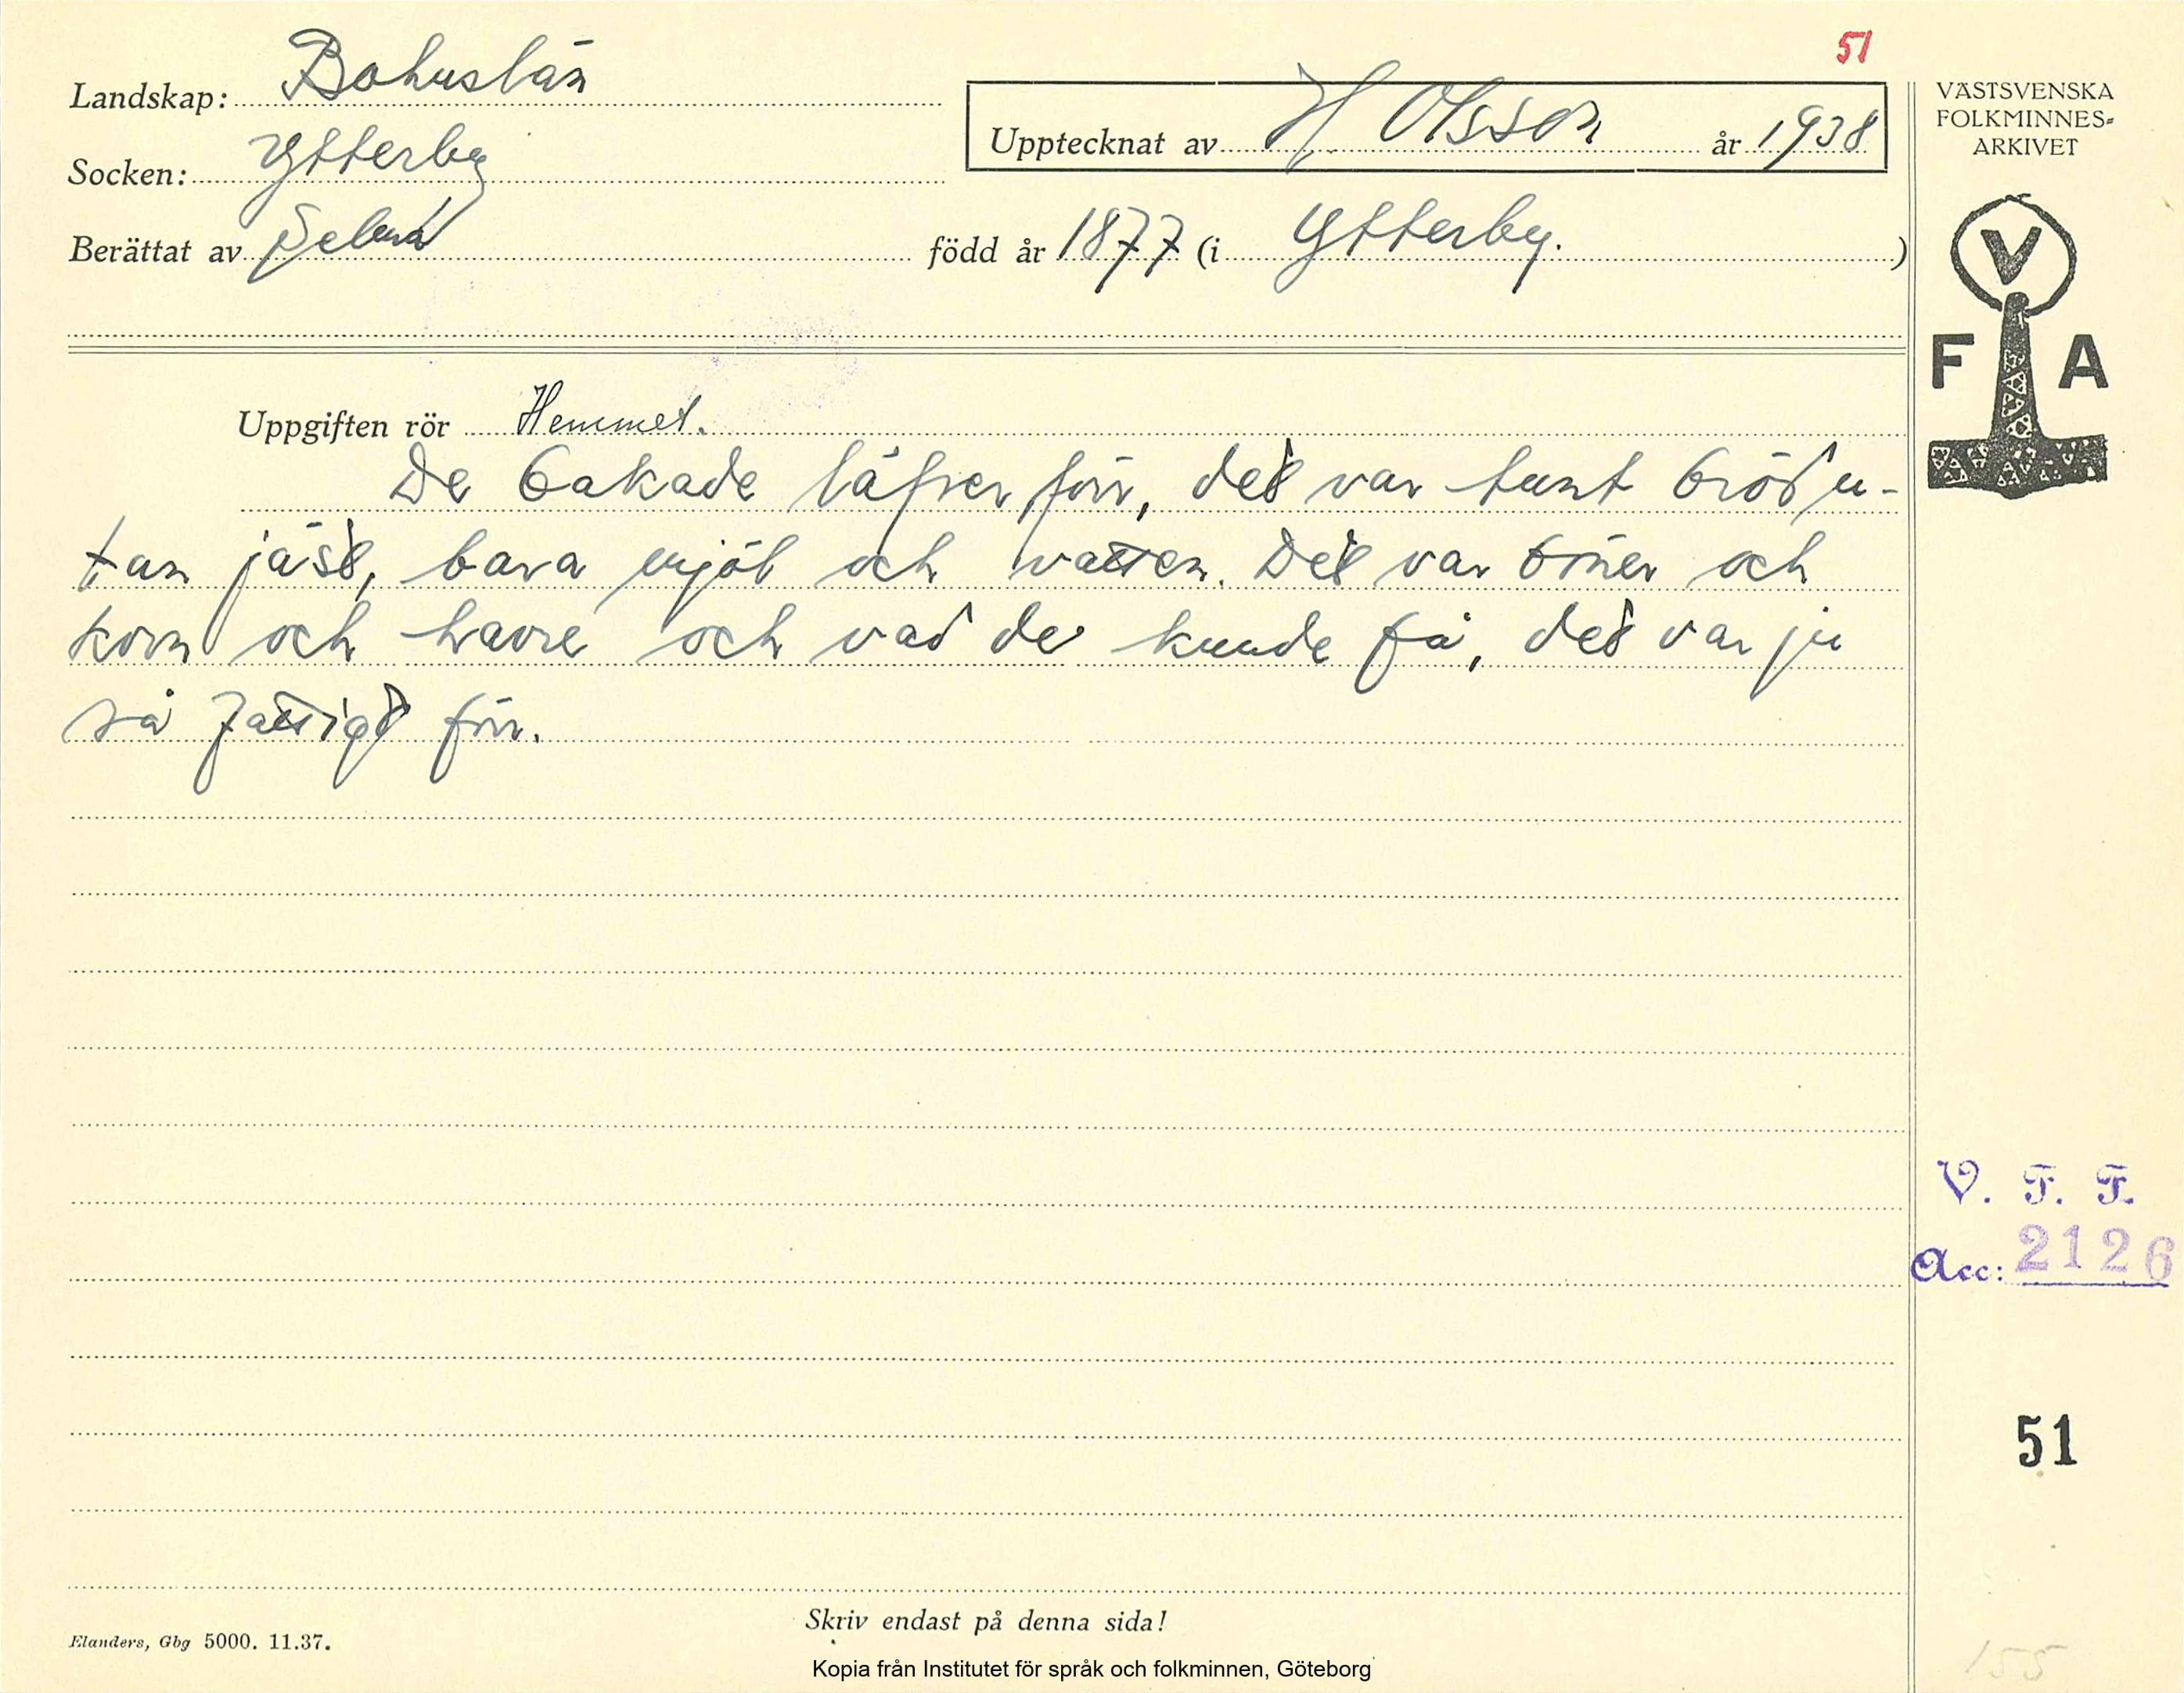 51
Landskap: Bohuslän
Upptecknat av H Olsson år 1938
Socken: Ytterby
Berättat av Selma född år 1877 (i Ytterby. )
VÄSTSVENSKA
FOLKMINNES-
ARKIVET
V
F A
Uppgiften rör Hemmet.
De bakade läfser förr, det var tunt bröd u-
tan jäst, bara mjöl och vatten. Det var bönor och
korn och havre och vad de kunde få, det var ju
så fattigt förr.
V. F. F.
Acc: 2126
51
Skriv endast på denna sida!
Elanders, Gbg 5000. 11.37.
155
Kopia från Institutet för språk och folkminnen, Göteborg